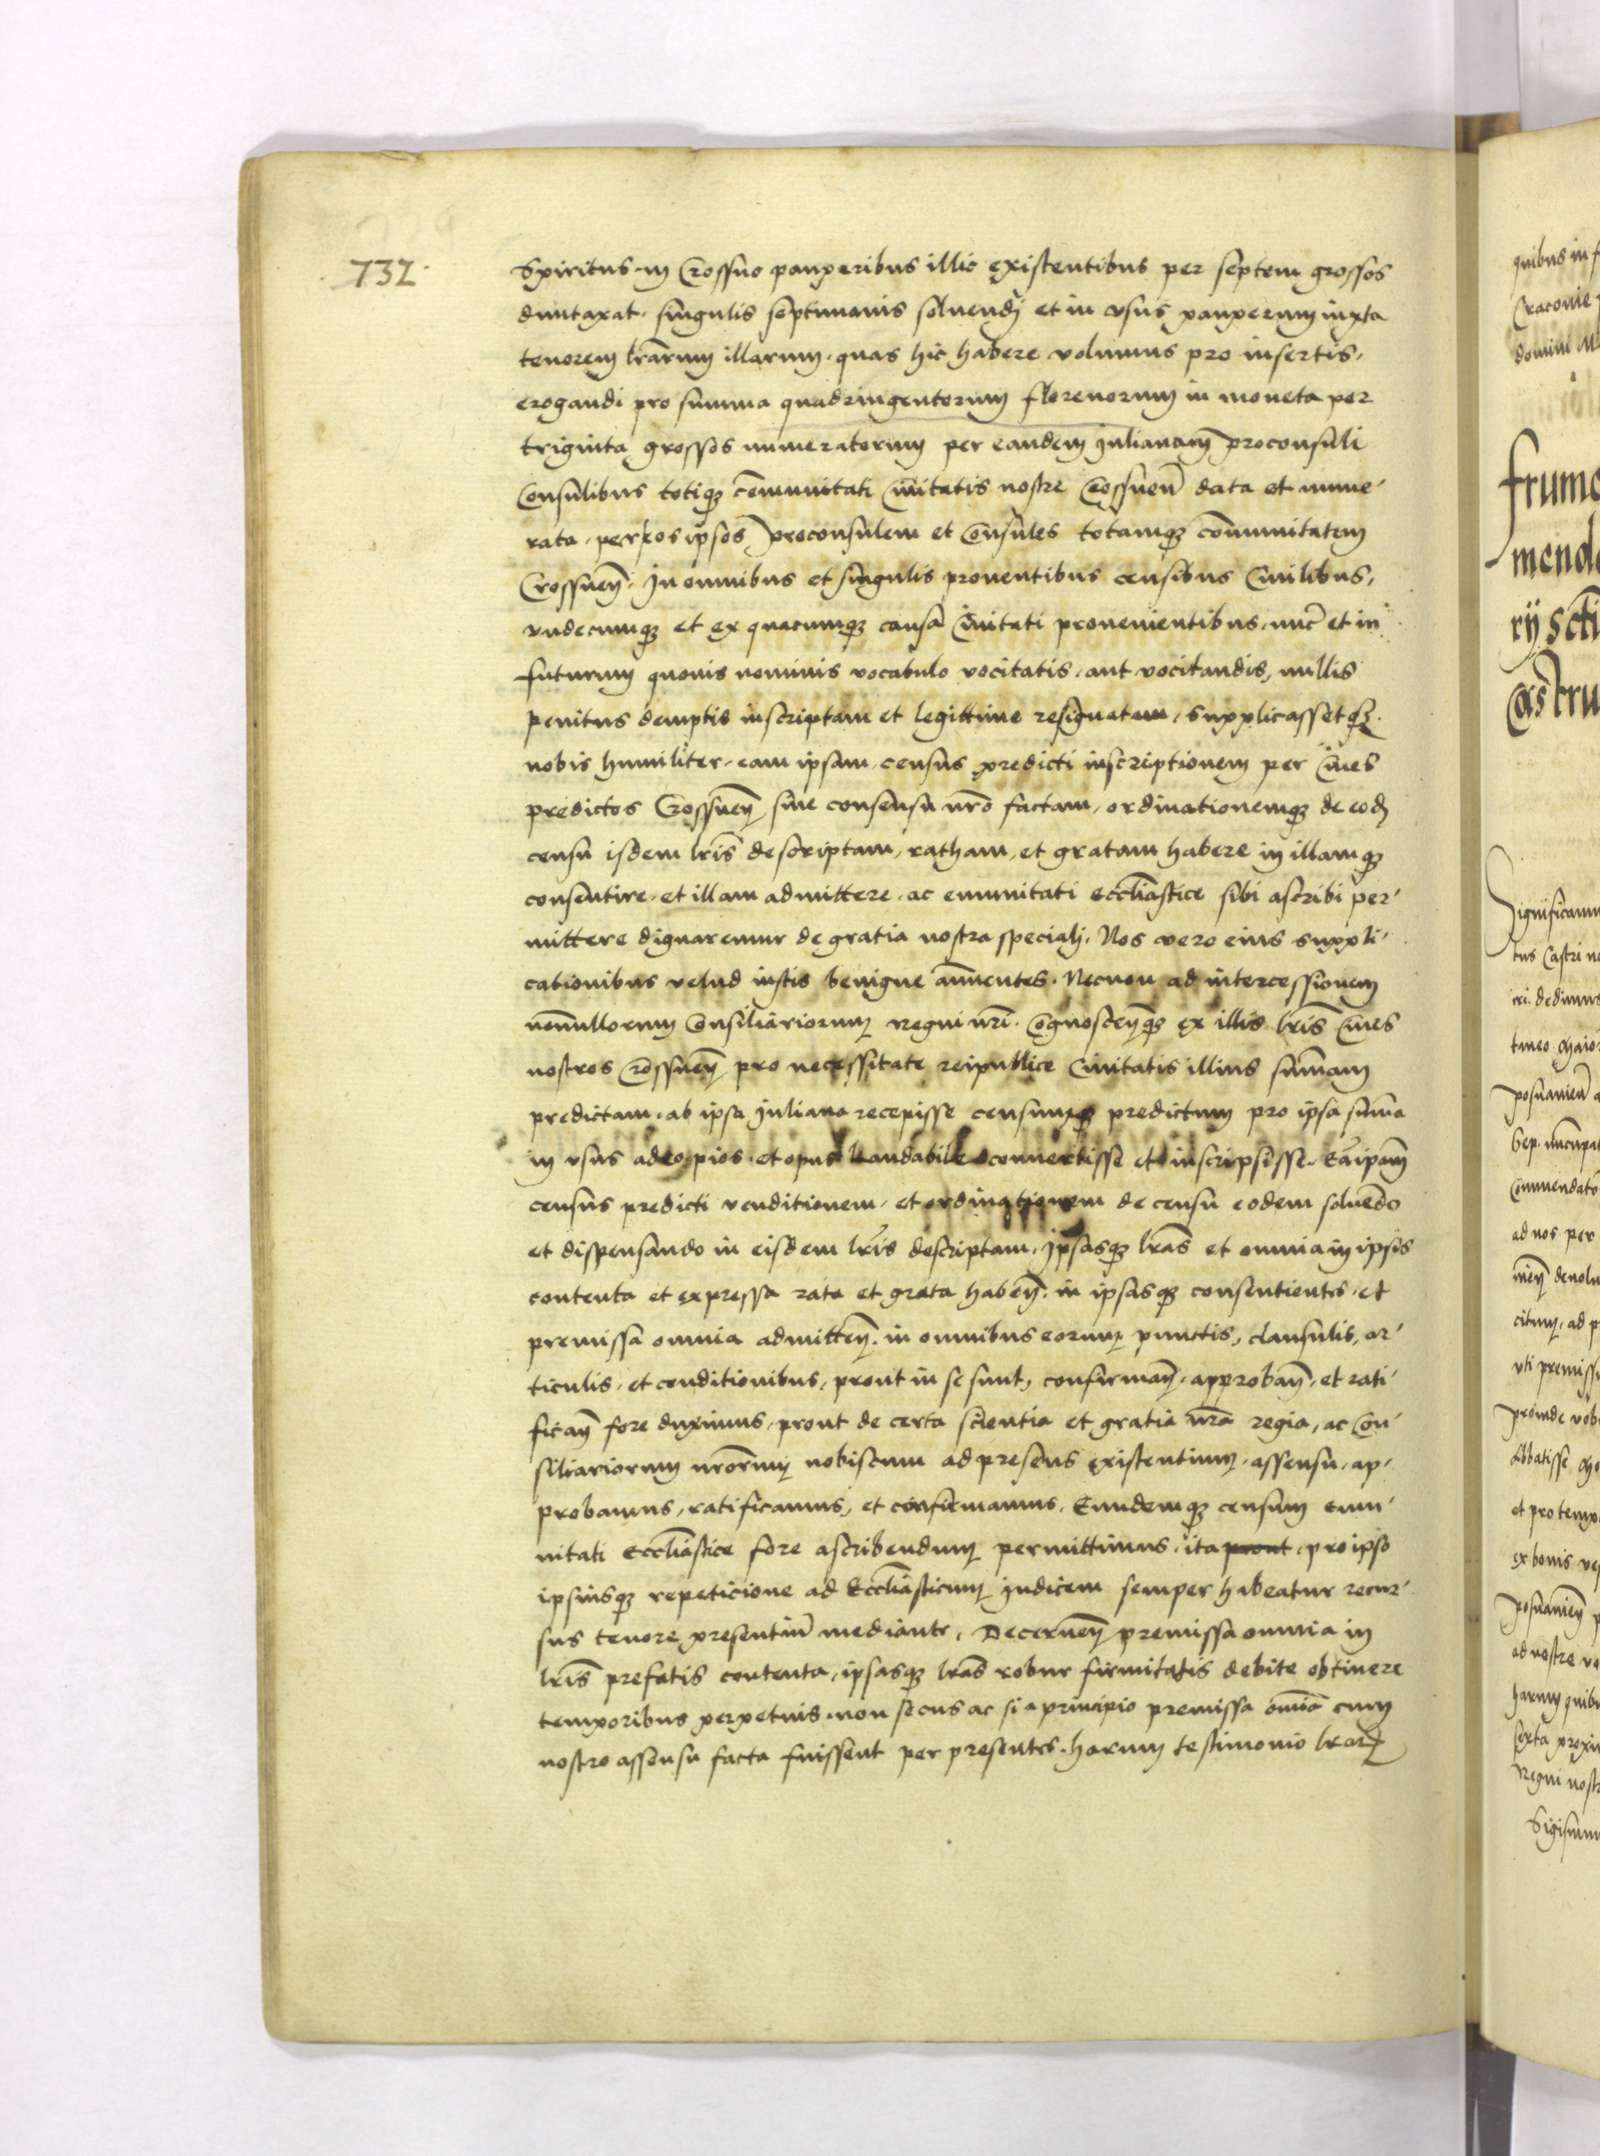 732
Spiritus in Crossno pauperibus illic existentibus per septem grossos
duntaxat singulis septimanis soluendj et in vsus pauperum iuxta
tenorem lrarum illarum quas hic habere volumus pro insertis,
erogandi pro summa quadringentorum florenorum in moneta per
triginta grossos numeratorum per eandem Julianam proconsuli
Consulibus totiqꝫ comunitati Ciuitatis nostre Crossnen̄ data et nume-
rata, per eos ipsos proconsulem et Consules totamqꝫ communitatem
Crossnen̄. In omnibus et singulis prouentibus censibus Ciuilibus,
vndecumqꝫ et ex quacumqꝫ causa Ciuitati prouenientibus, nūc et in
futurum quouis nominis vocabulo vocitatis, aut vocitandis, nullis
penitus demptis inscriptam et legittime resignatam, Supplicassetqꝫ
nobis humiliter, eam ipsam census predicti inscriptionem per Ciues
predictos Crossnen̄ sine consensu nrō factam, ordinationemqꝫ de eod̄
censu isdem lrīs descriptam, ratham, et gratam habere in illamqꝫ
consentire, et illam admittere, ac emunitati eccliastice sibi ascribi per-
mittere dignaremur de gratia nostra specialj, Nos vero eius suppli-
cationibus velud iustis benigne annuentes, Necnon ad intercessionem
nōnullorum Consiliariorum regni nrī. Cognoscen̄qꝫ ex illis lrīs Ciues
nostros Crossnen̄ pro necessitate reipublice Ciuitatis illius summam
predictam, ab ipsa Juliana recepisse censumqꝫ predictum pro ipsa summa
in vsus adeo pios, et opus laudabile conuertisse et inscripsisse. Eā ipsam
census predicti venditionem, et ordinationem de censu eodem soluēdo
et dispensando in eisdem lrīs descriptam, Ipsasqꝫ lrās et omnia in ipsis
contenta et expressa rata et grata haben̄. in ipsasqꝫ consentientes, et
premissa omnia admitten̄. in omnibus eorum punctis, clausulis, ar-
ticulis, et conditionibus, prout in se sunt, confirman̄, approban̄, et rati-
fican̄ fore duximus, prout de certa scientia et gratia nrā regia, ac Con-
siliariorum nrōrum nobiscum ad presens existentium, assensu, ap-
probamus, ratificamus, et confirmamus, Eundemqꝫ censum emu-
nitati Eccliastice fore ascribendum permittimus, ita prout, pro ipso
ipsiusqꝫ repeticione ad Eccliasticum Judicem semper habeatur recur-
sus tenore presentiū mediante, Decernen̄ premissa omnia in
lrīs prefatis contenta, ipsasqꝫ lrās robur firmitatis debite obtinere
temporibus perpetuis, non secus ac si a principio premissa omīa cum
nostro assensu facta fuissent per presentes. harum testimonio lrarꝫ
quibus in
Cracouie
domini
frume
mend
rÿ scti
Castru
Significam
tus Castri n
ri. dedimus
tineo maior
posnanien̄
commendato
ad nos per
citum, ad p
vti premiss
proinde vob
Abbatisse
et pro temp
ex bonis
posnanien̄ p
ad nostre
harum quib
sexta proxi
Regni nost
Sigismu